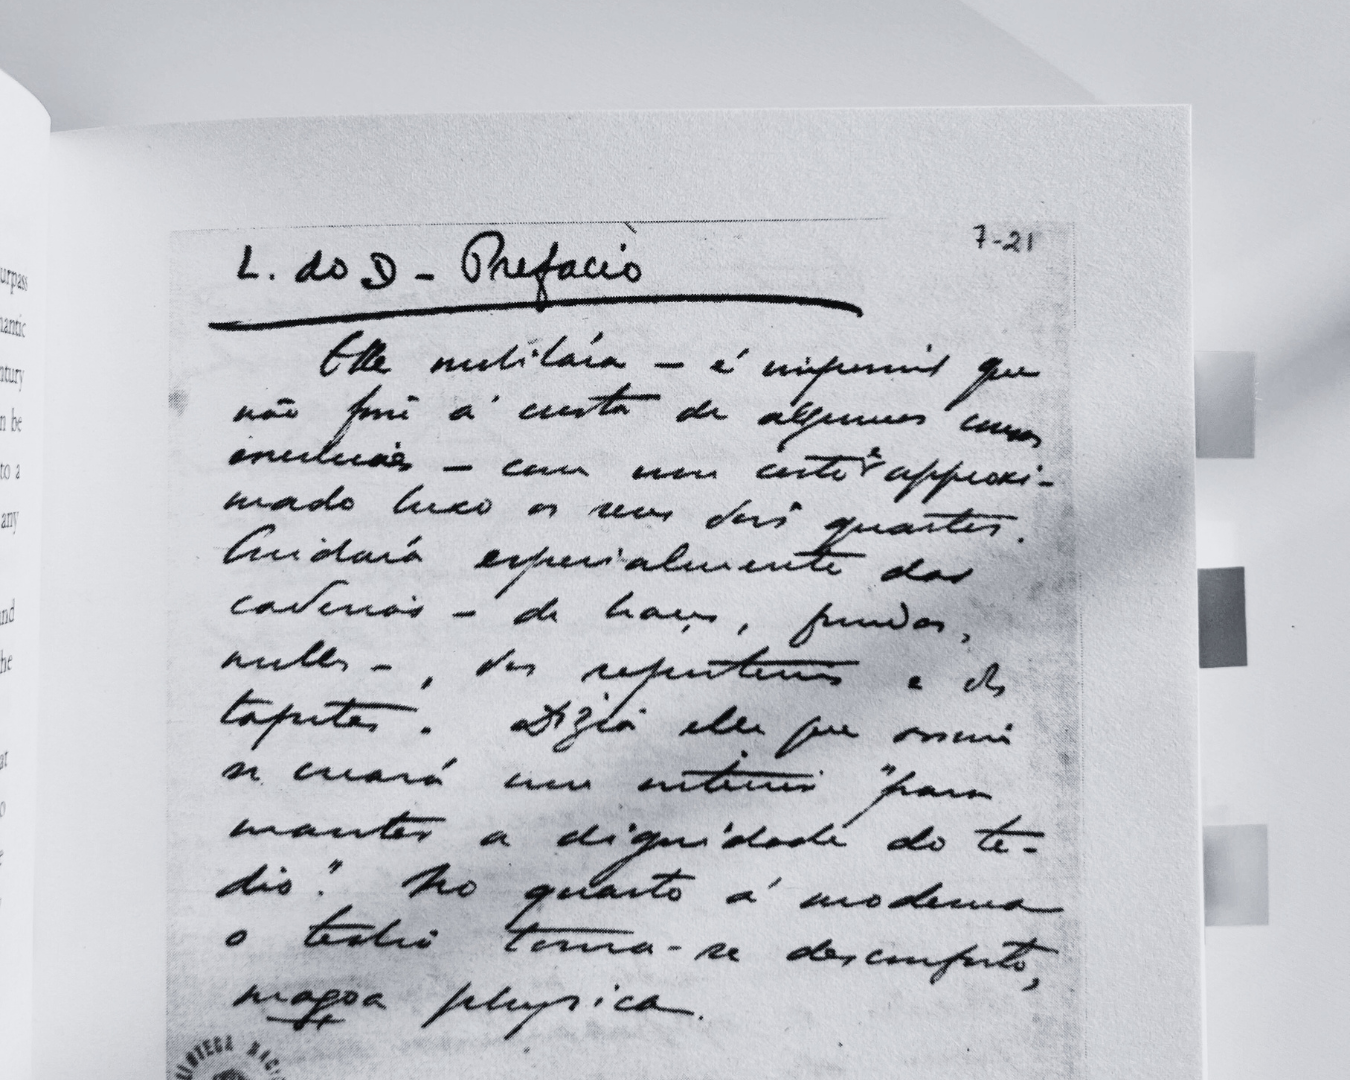 L. do D - Prefacio
7-21
Elle mobilára – é impossivel que
não fosse á custa de algumas cousas
essenciaes – com um certo e approxi-
mado luxo os seus dois quartos.
Cuidára especialmente das
cadeiras – de braços, fundas,
molles –, dos reposteiros e dos
tapetes. Dizia elle que assim
se creára um interior "para
manter a dignidade do te-
dio". No quarto á moderna
o tedio torna-se desconforto,
magoa physica.
urpass
mantic
ntury
n be
to a
any
and
he
at
BLIOTECA NACI